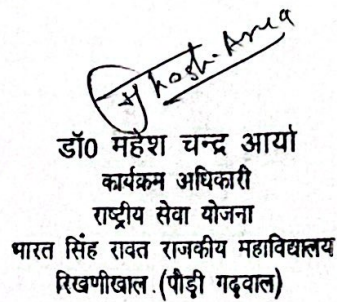 डॉ0 महेश चन्द्र आर्या
कार्यक्रम अधिकारी
राष्ट्रीय सेवा योजना
भारत सिंह रावत राजकीय महाविद्यालय
रिखणीखाल.(पौड़ी गढ़वाल)